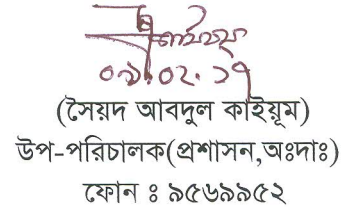 ০৯.০২.১৭
(সৈয়দ আবদুল কাইয়ূম)
উপ-পরিচালক(প্রশাসন,অঃদাঃ)
ফোন ঃ ৯৫৬৯৯৫২